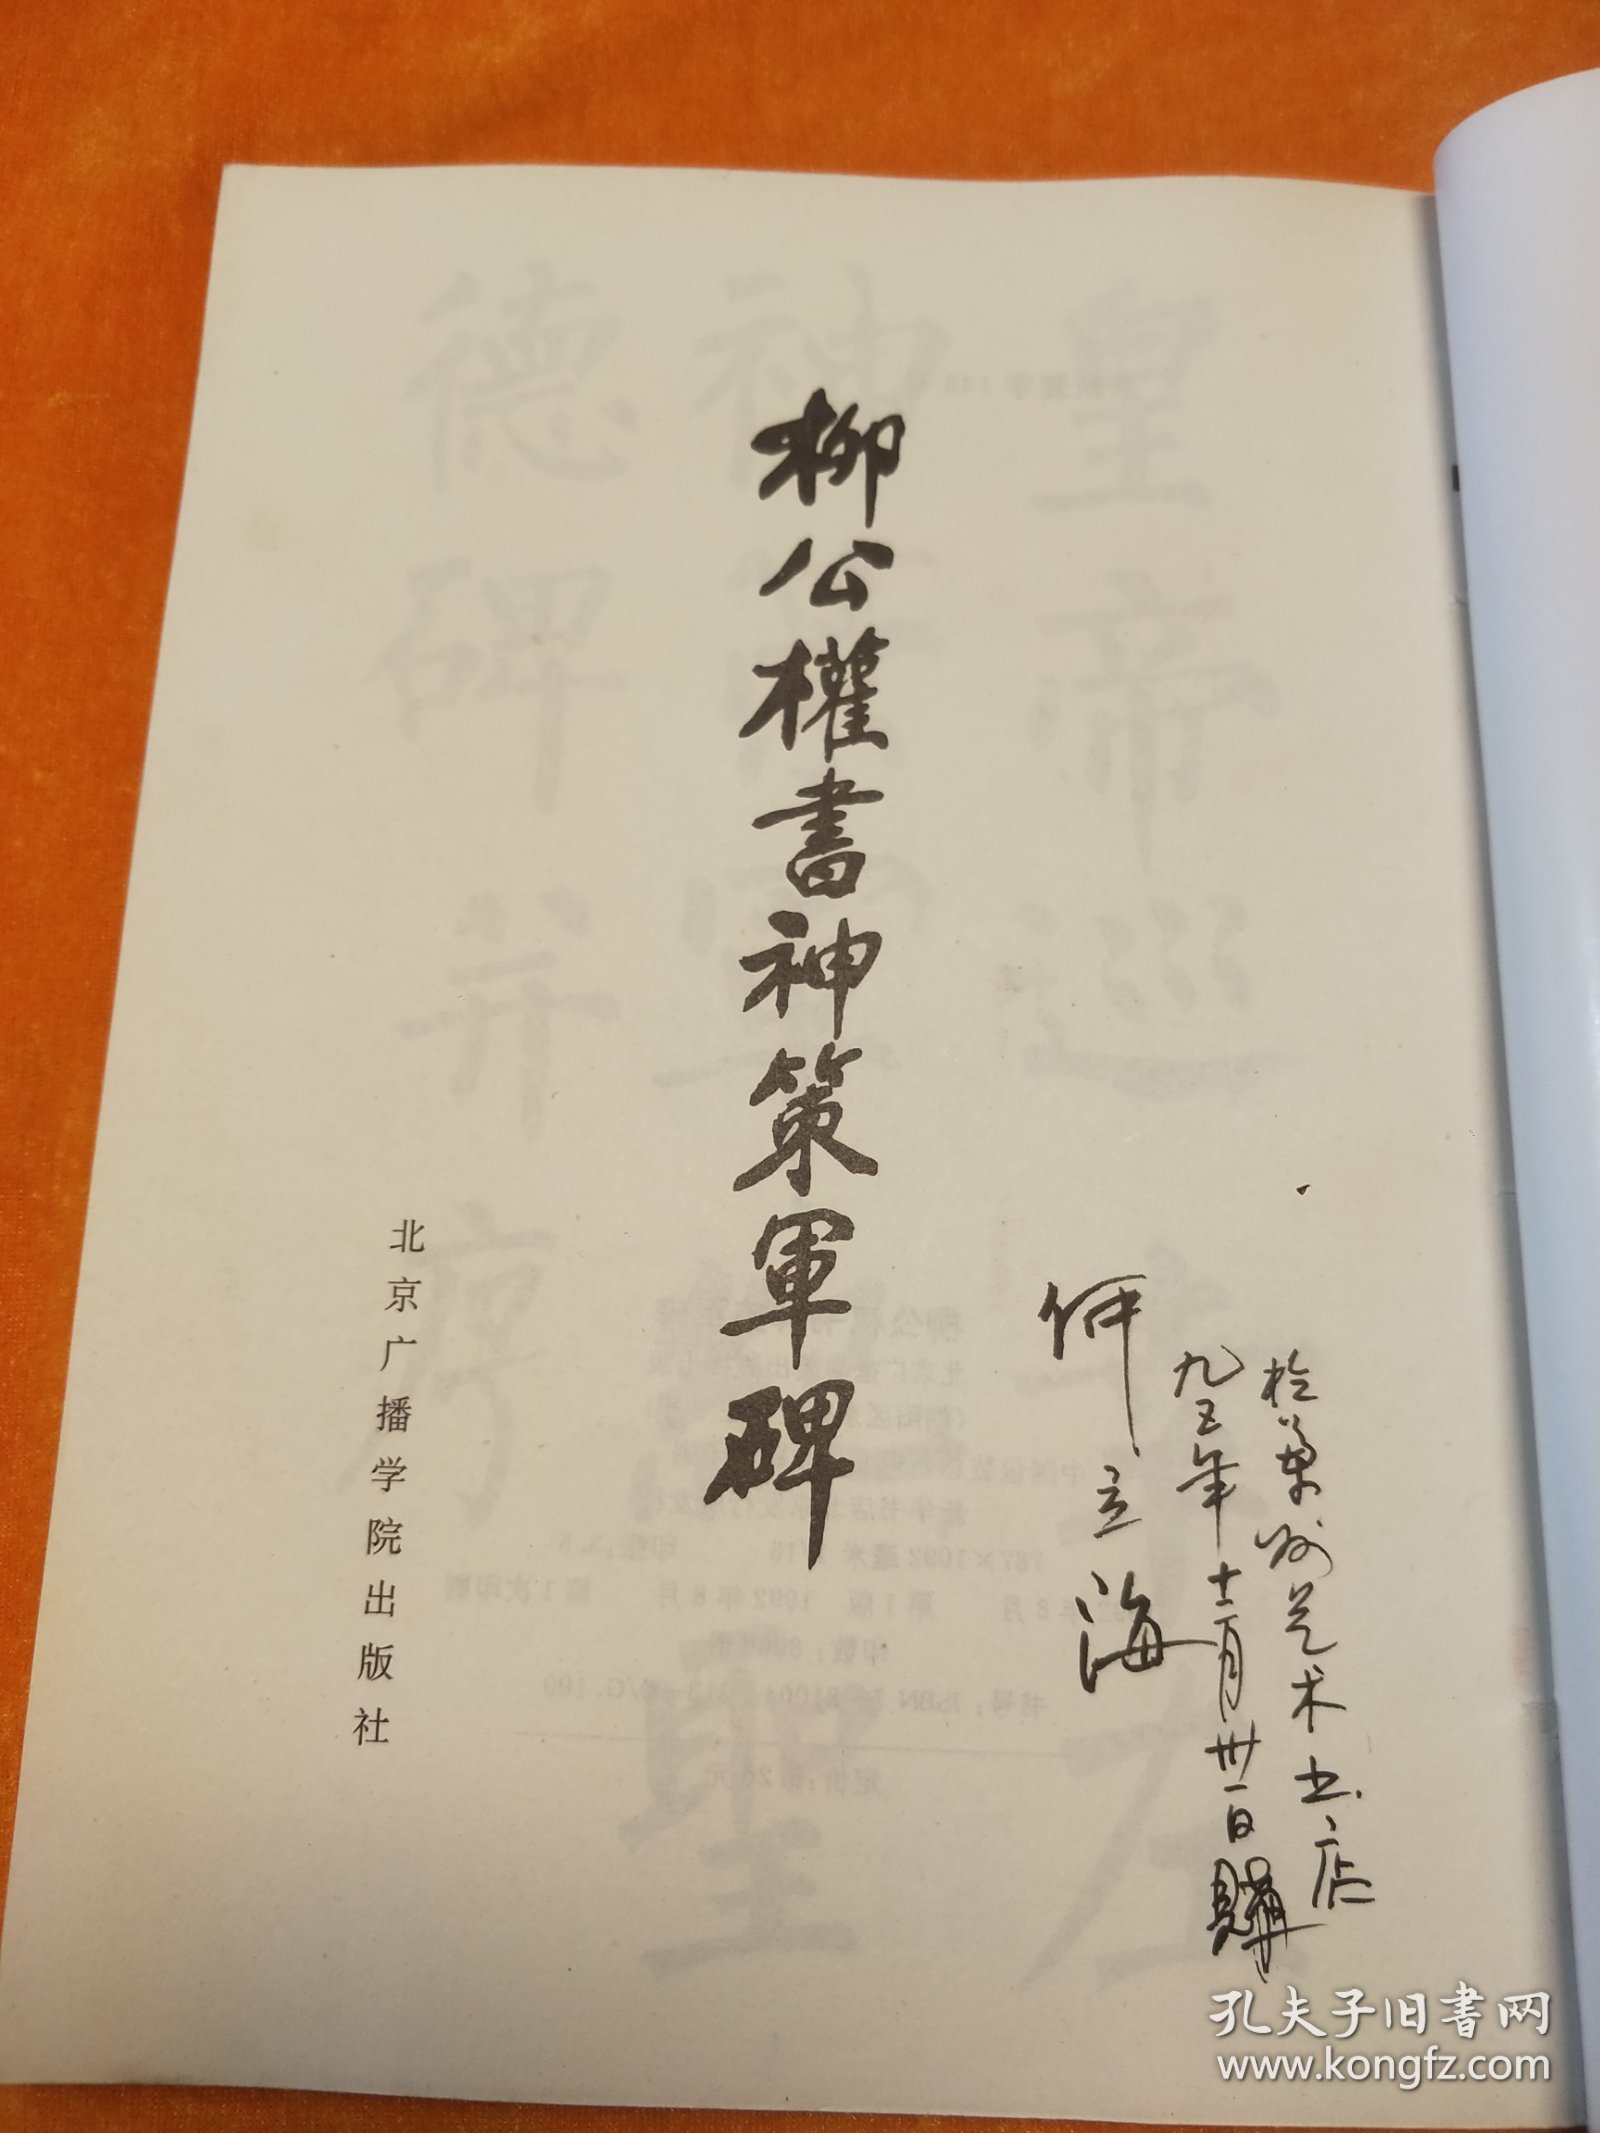 柳公權書神策軍碑
北京广播学院出版社
於蘭州艺术书店
九五年十二月卅一日購
何立海
孔夫子旧书网
www.kongfz.com